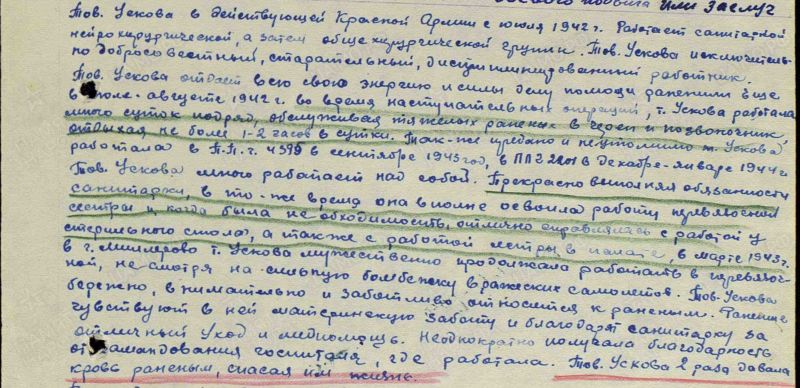 боевого подвига или заслуг
Тов. Ускова в действующей Красной Армии с июля 1942 г. Работает санитаркой
нейрохирургической, а затем общехирургической группы. Тов. Ускова исключитель-
но добросовестный, старательный, дисциплинированный работник.
Тов. Ускова отдает всю свою энергию и силы делу помощи раненым. Еще
в июле-августе 1942 г. во время наступательных операций, т. Ускова работала
много суток подряд, обслуживая тяжелых раненых в череп и позвоночник,
отдыхая не более 1-2 часов в сутки. Так-же преданно и неутомимо т. Ускова
работала в П.П.Г. 4395 в сентябре 1943 год, в ППГ 2201 в декабре-январе 1944 г.
Тов. Ускова много работает над собой. Прекрасно выполняя обязанности
санитарки, в то-же время она вполне освоила работу перевязочной
сестры и, когда была необходимость, отлично справлялась с работой у
стерильного стола, а также с работой сестры в палате, в марте 1943 г.
в г. Миллерово т. Ускова мужественно продолжала работать в перевязоч-
ной, не смотря на сильную бомбежку вражеских самолетов. Тов. Ускова
бережно, внимательно и заботливо относится к раненым. Раненые
чувствуют в ней материнскую заботу и благодарят санитарку за
отличный уход и медпомощь. Неоднократно получала благодарность
от командования госпиталя, где работала. Тов. Ускова 2 раза давала
кровь раненым, спасая им жизнь.